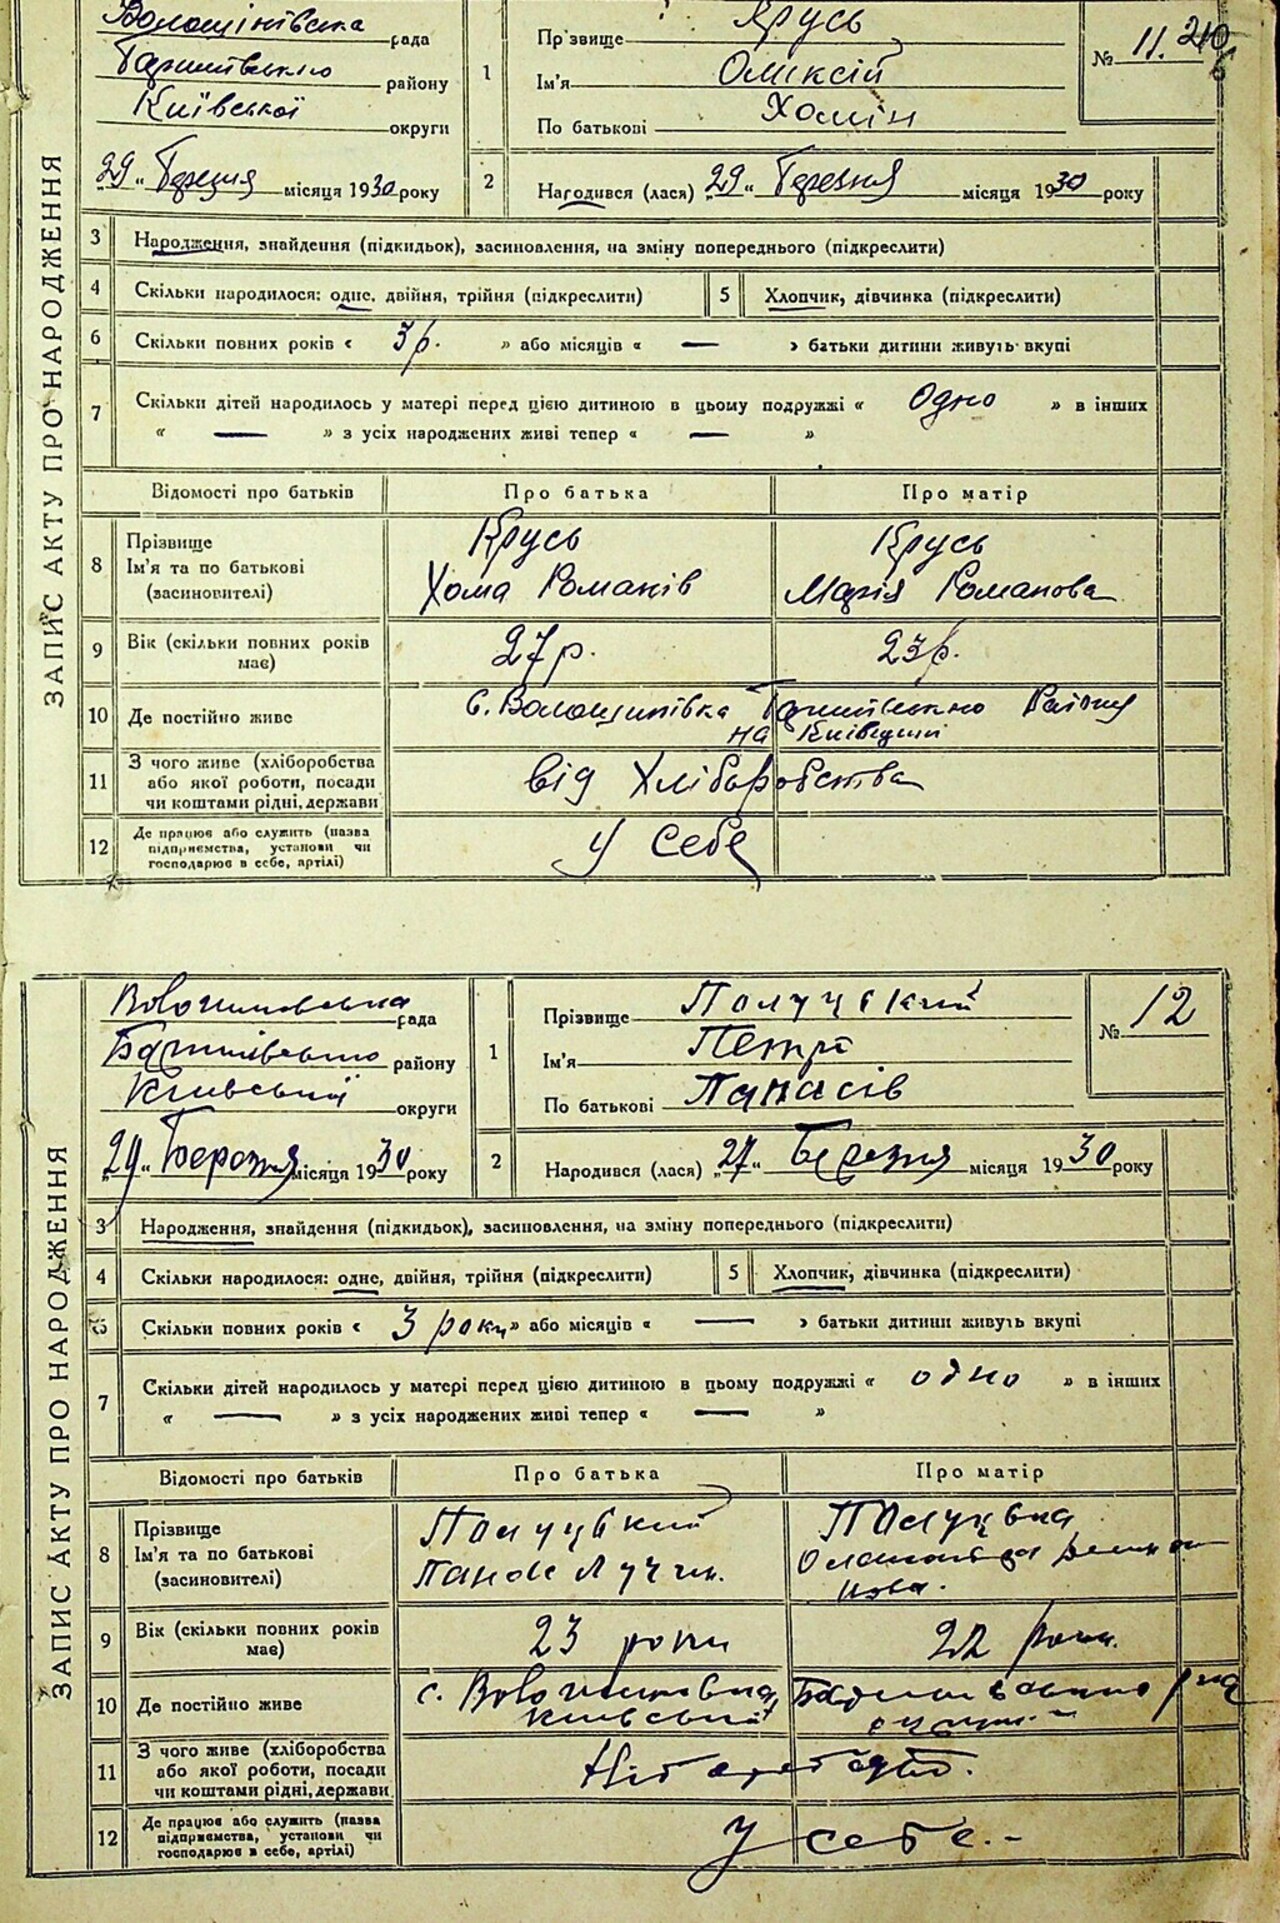 ЗАПИС АКТУ ПРО НАРОДЖЕННЯ
Волощинівська рада
району
Київської округи
„29“ Березня місяця 1930 року
1
Прізвище Крусь
Ім'я Олексій
По батькові Хомін
№ 11. 210
2
Народився (лася) „29“ Березня місяця 1930 року
3 Народження, знайдення (підкидьок), засиновлення, на зміну попереднього (підкреслити)
4 Скільки народилося: одне, двійня, трійня (підкреслити) 5 Хлопчик, дівчинка (підкреслити)
6 Скільки повних років « 3 р. » або місяців « — » батьки дитини живуть вкупі
7 Скільки дітей народилось у матері перед цією дитиною в цьому подружжі « Одно » в інших
« — » з усіх народжених живі тепер « — »
Відомості про батьків Про батька Про матір
8 Прізвище Ім'я та по батькові (засиновителі)
Крусь Крусь
Хома Романів Марія Романова
9 Вік (скільки повних років має) 27 р. 23 р.
10 Де постійно живе с. Волощинівка Району
на Київщині
11 З чого живе (хліборобства або якої роботи, посади чи коштами рідні, держави
від Хліборобства
12 Де працює або служить (назва підприємства, установи чи господарює в себе, артілі)
У себе
ЗАПИС АКТУ ПРО НАРОДЖЕННЯ
рада
району
округи
„29“ Березня місяця 1930 року
1
Прізвище Полуцький
Ім'я Петро
По батькові Панасів
№ 12
2
Народився (лася) „27“ Березня місяця 1930 року
3 Народження, знайдення (підкидьок), засиновлення, на зміну попереднього (підкреслити)
4 Скільки народилося: одне, двійня, трійня (підкреслити) 5 Хлопчик, дівчинка (підкреслити)
6 Скільки повних років « 3 роки » або місяців « — » батьки дитини живуть вкупі
7 Скільки дітей народилось у матері перед цією дитиною в цьому подружжі « одно » в інших
« — » з усіх народжених живі тепер « — »
Відомості про батьків Про батька Про матір
8 Прізвище Ім'я та по батькові (засиновителі)
Полуцький
Панас
9 Вік (скільки повних років має) 23 роки 22 роки
10 Де постійно живе с.
11 З чого живе (хліборобства або якої роботи, посади чи коштами рідні, держави
12 Де працює або служить (назва підприємства, установи чи господарює в себе, артілі)
У себе.-